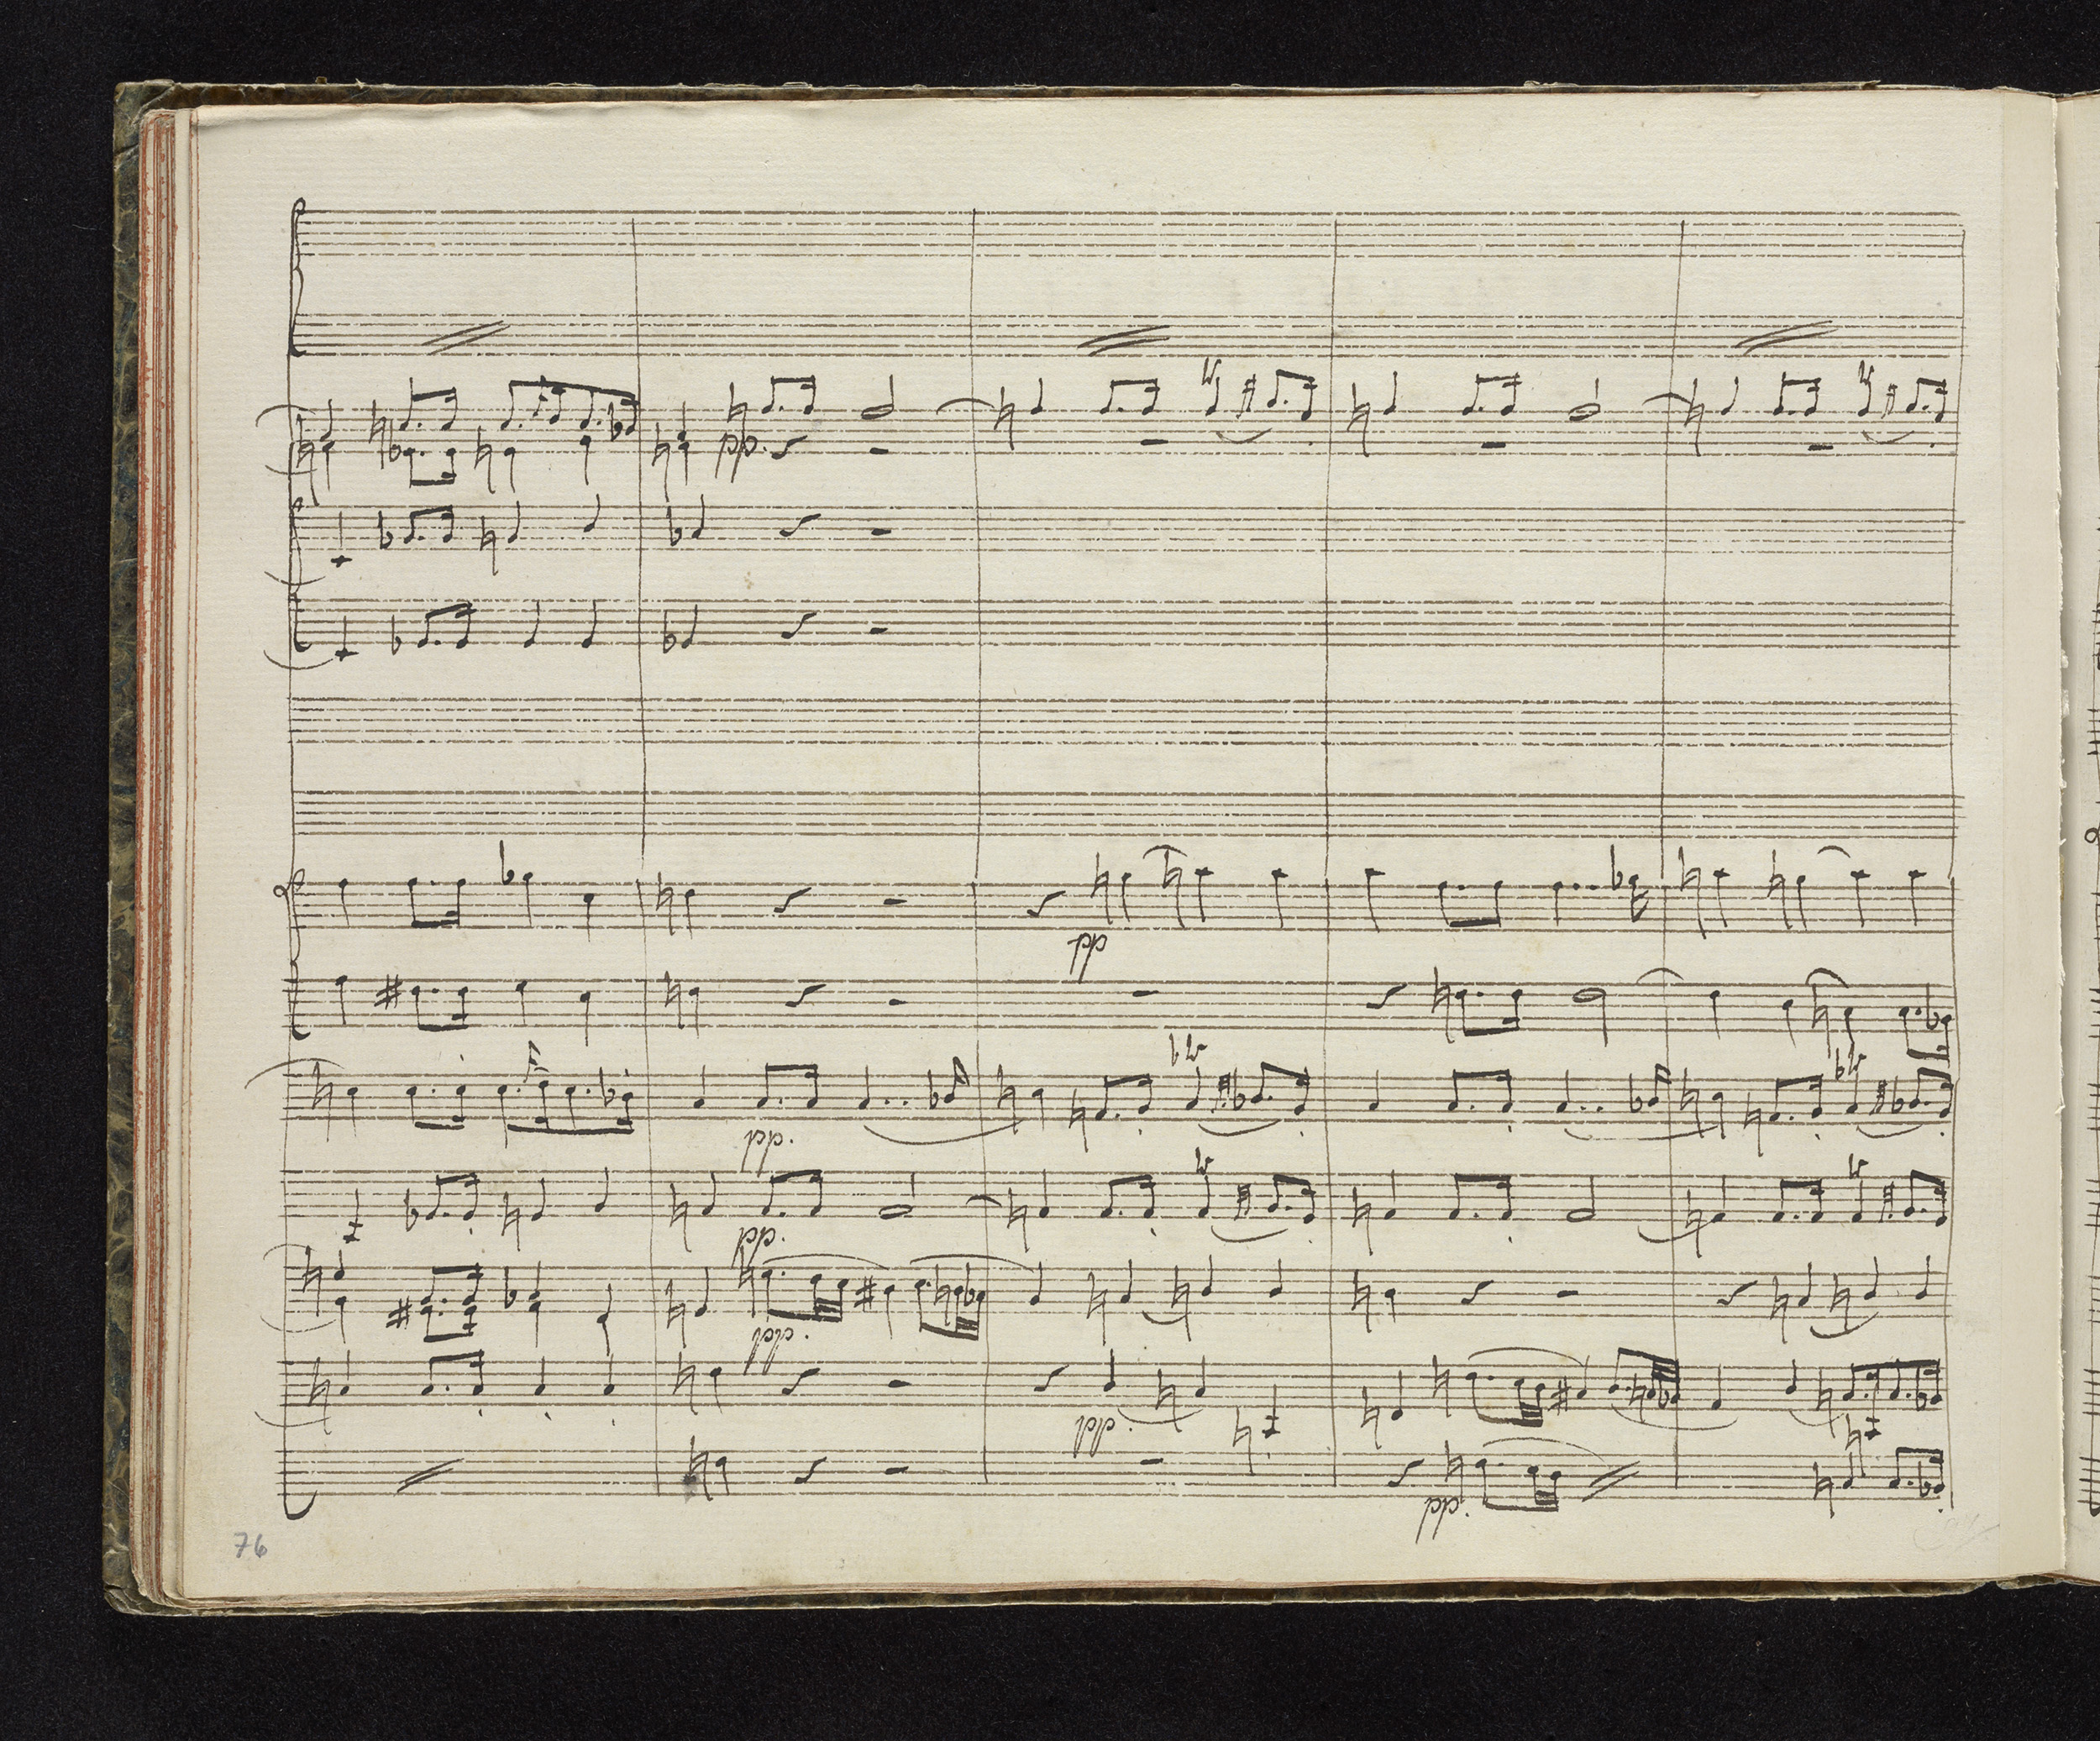 pp.
pp
pp.
pp.
pp.
pp.
pp.
76